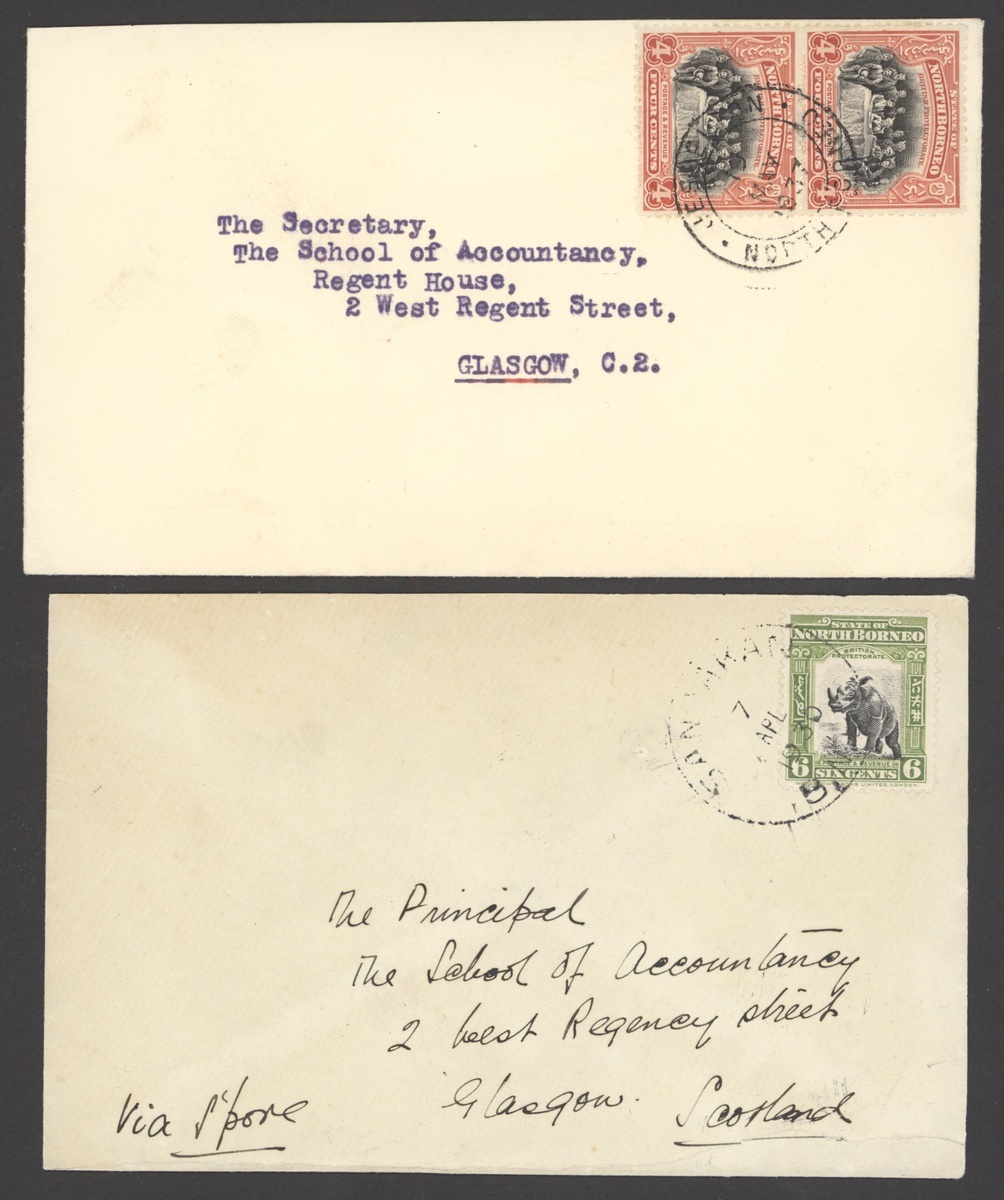 4 STATE OF NORTH BORNEO 4
BRITISH PROTECTORATE
POSTAGE & REVENUE
FOUR CENTS
4 STATE OF NORTH BORNEO 4
FOUR CENTS
JESSELTON
NORTH
The Secretary,
The School of Accountancy,
Regent House,
2 West Regent Street,
GLASGOW, C.2.
STATE OF
NORTH BORNEO
BRITISH
PROTECTORATE
POSTAGE & REVENUE
6 SIX CENTS 6
SANDAKAN
7
APL
1930
The Principal
The School of Accountancy
2 West Regency street
Glasgow. Scotland
Via S'pore